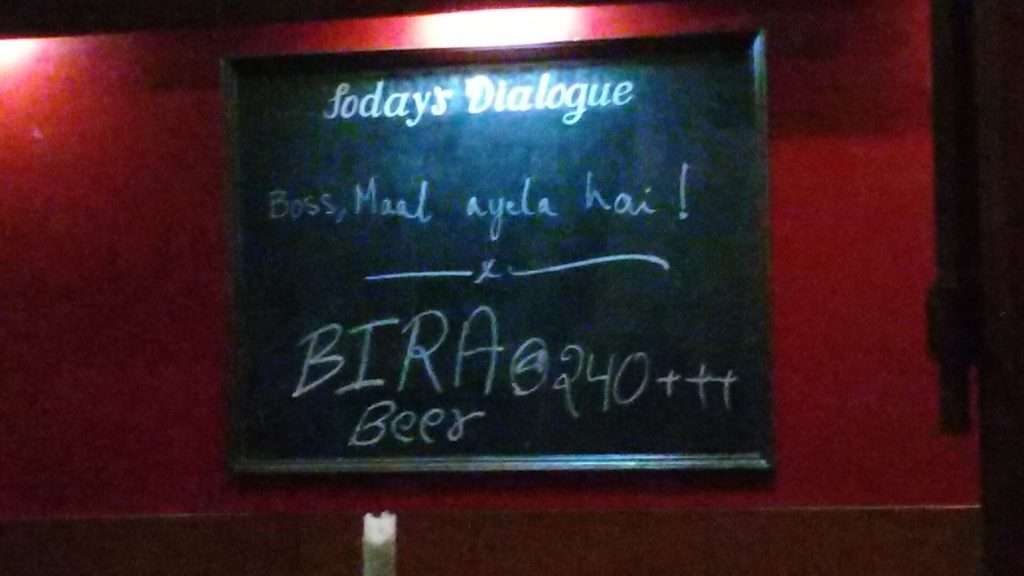 Todays Dialogue
Boss, Maal ayela hai!
x
BIRA @ 240+++
Beer